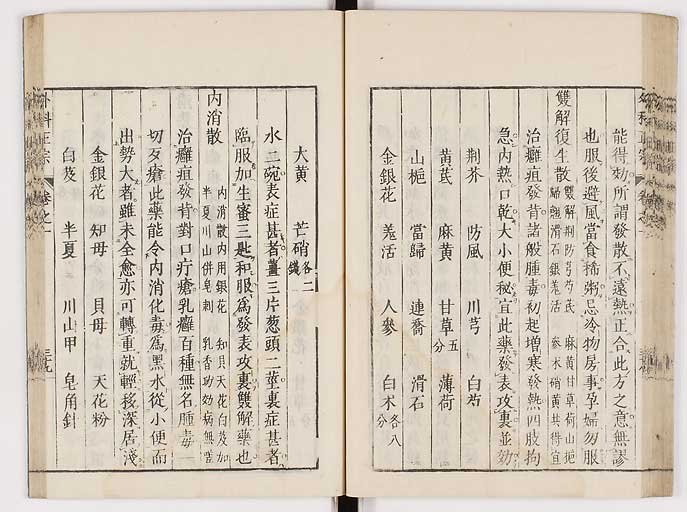 能得効所謂發散不遠熱正合此方之意無謬
也服後避風當食稀粥忌冷物房事孕婦勿服
雙解復生散
雙解荆防芎芍芪 麻黃甘草荷山梔
歸翹滑石銀羗活 參术硝黃共得宜
治癰疽發背諸般腫毒初起増寒發熱四肢拘
急内熱口乾大小便秘宜此藥發表攻裏並効
荆芥 防風 川芎 白芍
黃芪 麻黃 甘草五分 薄荷
山梔 當歸 連喬 滑石
金銀花 羗活 人參 白术各八分
大黃 芒硝各二錢
水二碗表症甚者薑三片葱頭二莖裏症甚者
臨服加生蜜三匙和服為發表攻裏雙解藥也
内消散
内消散内用銀花 知貝天花白芨加
半夏川山併皂刺 乳香功効病無差
治癰疽發背對口疔瘡乳癰百種無名腫毒一
切歹瘡此藥能令内消化毒為黑水從小便而
出勢大者雖未全愈亦可轉重就輕移深居淺
金銀花 知母 貝母 天花粉
白芨 半夏 川山甲 皂角針
外科正宗 卷之一 三十九